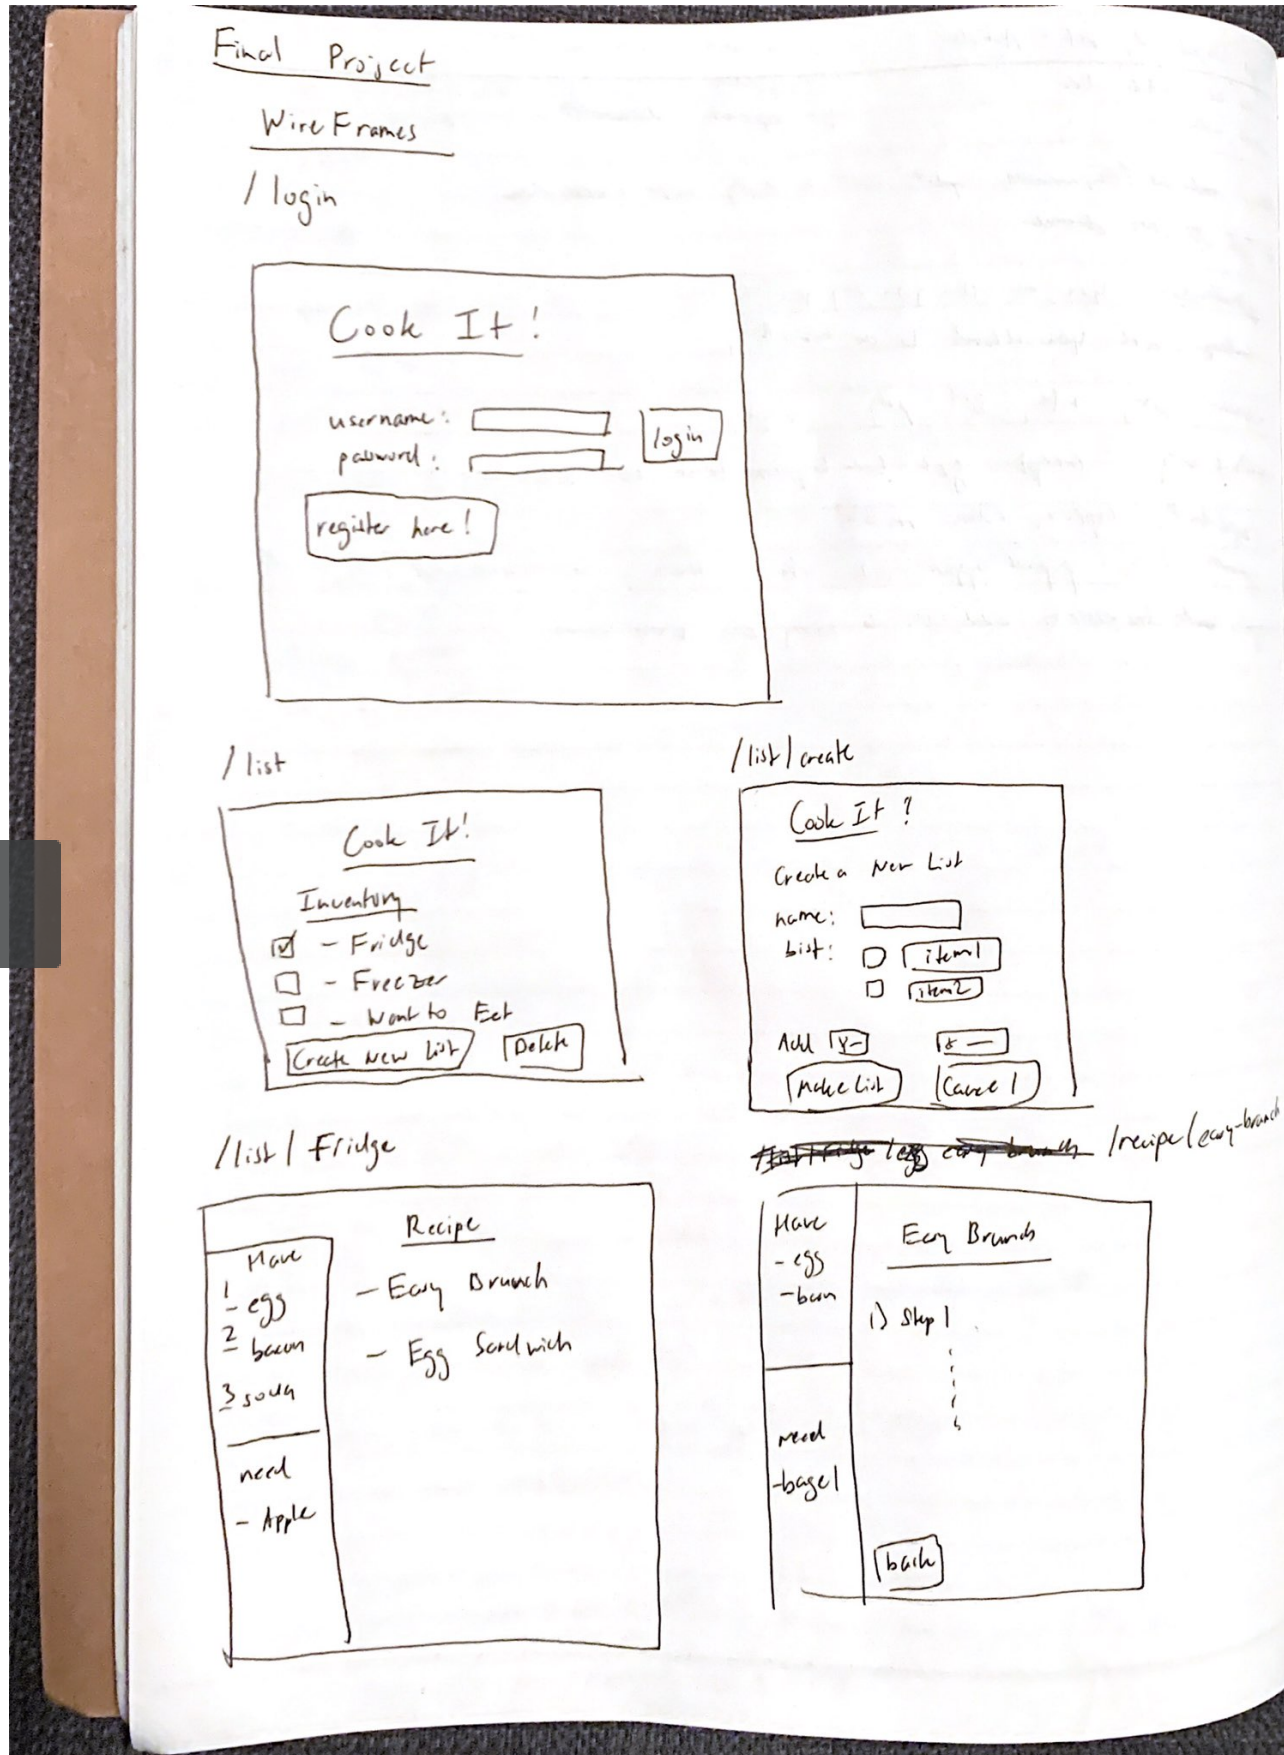 Final Project
WireFrames
/login
Cook It!
username:
password:
login
register here!
/list
Cook It!
Inventory
- Fridge
- Freezer
- Want to Eat
Create New List
Delete
/list/create
Cook It?
Create a New List
name:
list:
item1
item2
Add
Make List
Cancel
/list/Fridge
Have
1 - egg
2 - bacon
3 soda
need
- Apple
Recipe
- Easy Brunch
- Egg Sandwich
/recipe/easy-brunch
Have
- egg
- bacon
need
- bagel
Easy Brunch
1) Step 1
back